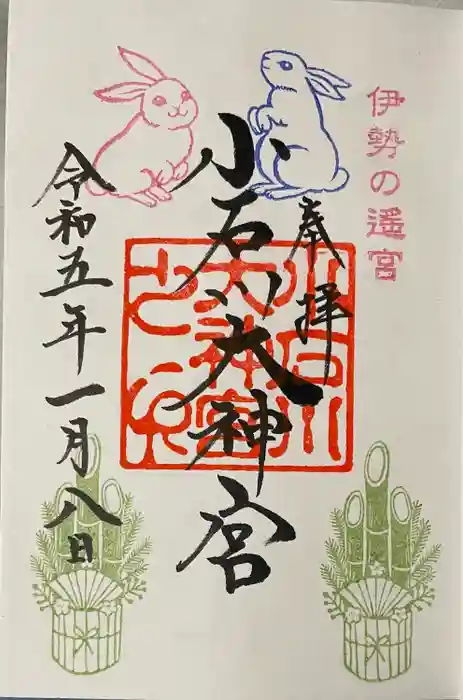 伊勢の遥宮
奉拝
小石川大神宮
小石川大神宮之印
令和五年一月八日